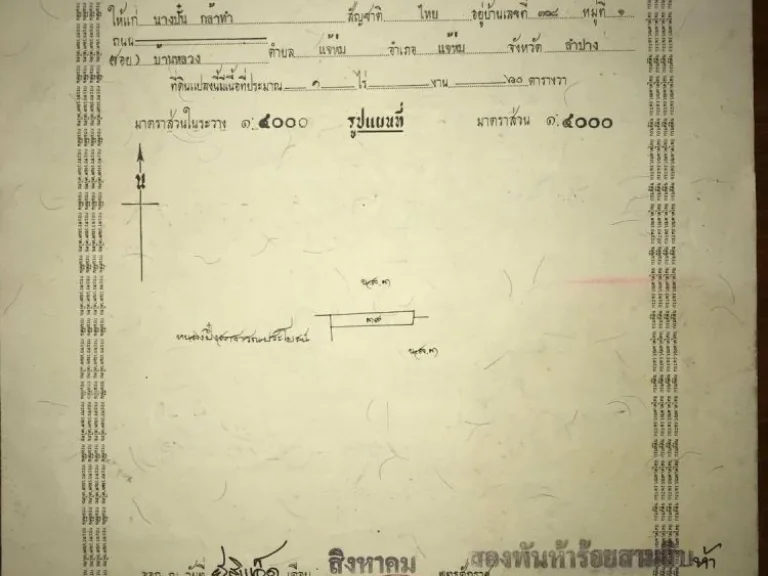 ให้แก่ นางปั๋น กล้าทำ สัญชาติ ไทย อยู่บ้านเลขที่ ๓๔ หมู่ที่ ๑
ถนน
(ซอย) บ้านหลวง ตำบล แจ้ห่ม อำเภอ แจ้ห่ม จังหวัด ลำปาง
ที่ดินแปลงนี้มีเนื้อที่ประมาณ ๑ ไร่ งาน ๒๐ ตารางวา
มาตราส่วนในระวาง ๑:๕๐๐๐ รูปแผนที่ มาตราส่วน ๑:๕๐๐๐
น
น.ส.๓
๓๗
หนองปึ๋งสาธารณประโยชน์
น.ส.๓
ออก ณ วันที่ เดือน สิงหาคม พุทธศักราช สองพันห้าร้อยสามสิบห้า